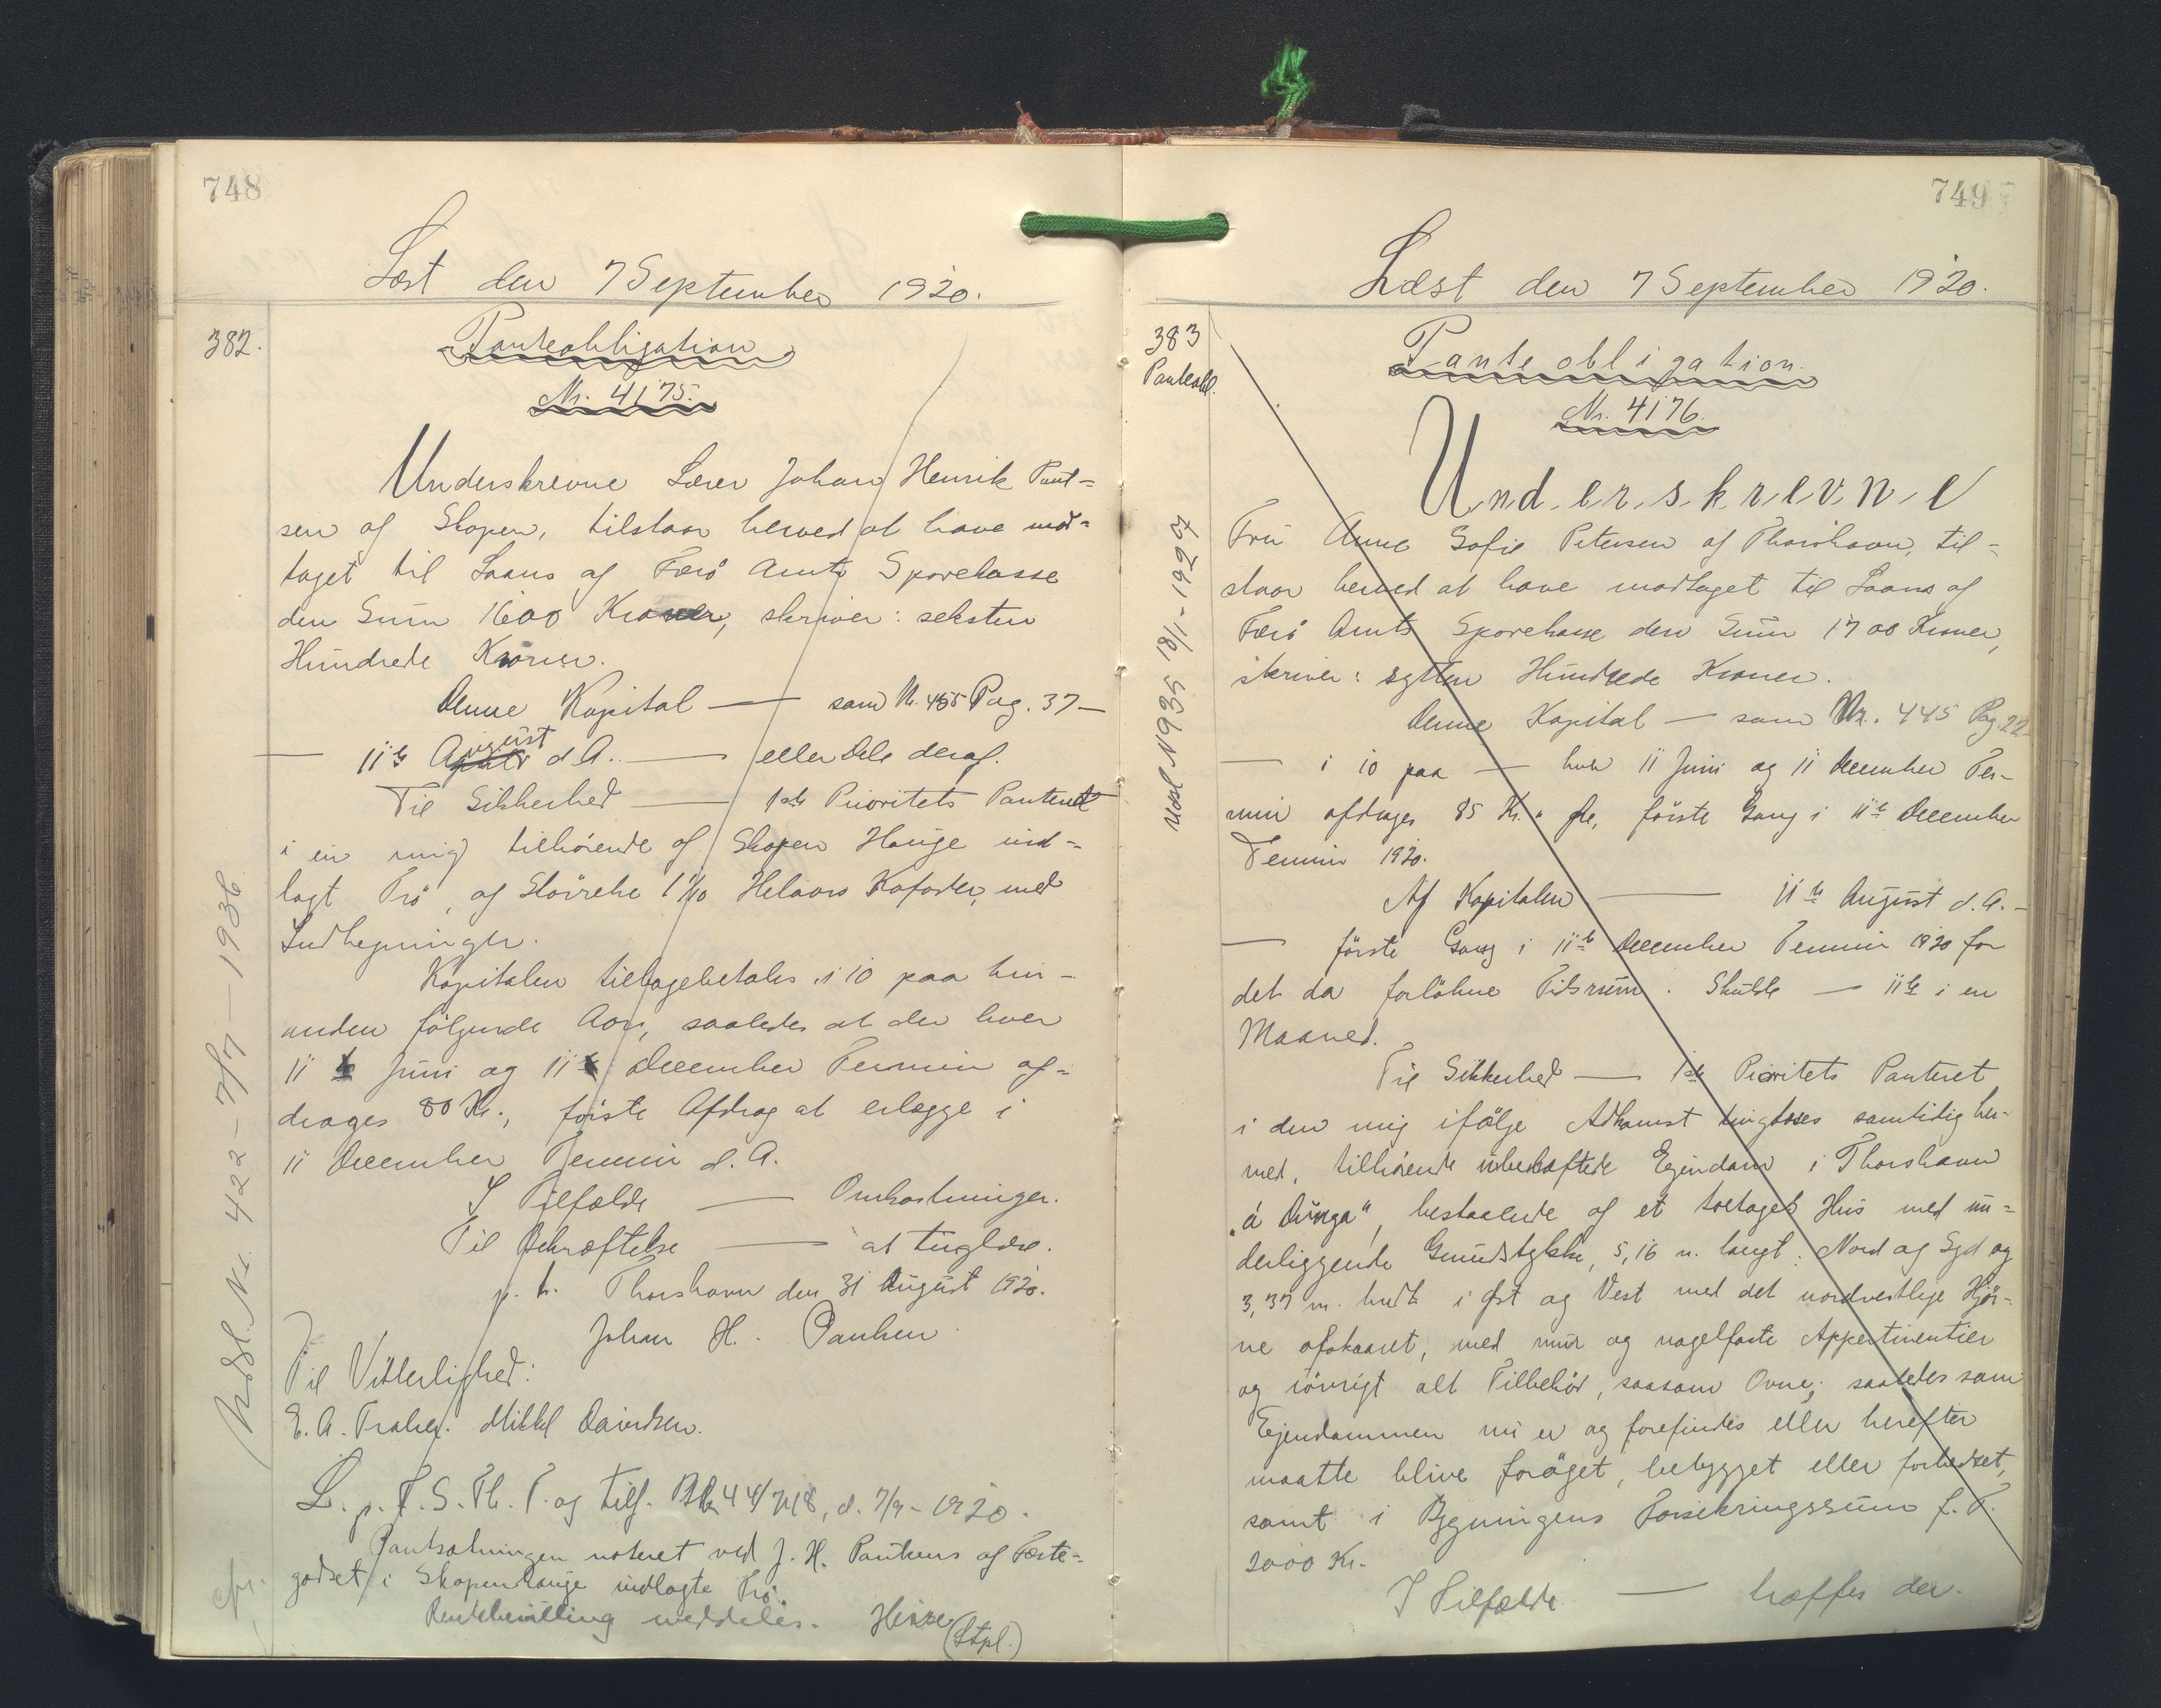 748
Læst den 7 September 1920.
382.
Panteobligation
Nr. 4175.
Underskrevne Lærer Johan Henrik Poul=
sen af Skopen, tilstaar herved at have mod=
taget til Laans af Færø Amts Sparekasse
den Sum 1600 Kroner, skriver: seksten
Hundrede Kroner.
Denne Kapital — som Nr. 455 Pag. 37 —
— 11te August d.A. — eller Dele deraf.
Til Sikkerhed — 1ste Prioritets Panteret
i en mig tilhørende af Skopen Hauge ind=
lagt Trø, af Størrelse 1 1/10 Helaars Kofoder, med
Indhegninger.
Kapitalen tilbagebetales i 10 paa hin-
anden følgende Aar, saaledes at der hver
11te Juni og 11te December Termin af=
drages 80 Kr., første Afdrag at erlægge i
11 December Termin d. A.
I Tilfælde — Omkostninger.
Til Bekræftelse — at tinglæse.
p. t. Thorshavn den 31 August 1920.
Johan H. Paulsen.
Til Vitterlighed:
E. A. Mikkel Davidsen.
L. p. F. S. Th. T. og tilf. d. 7/9 - 1920.
Pantsætningen noteret ved J. H. Paulsens af Fæste=
godset i Skopen Hauge indlagte Trø.
meddeles. (Stpl.)
Udsl. Nr. 422 - 7/7 — 1936
749
Læst den 7 September 1920.
383
Panteobl.
Panteobligation.
Nr. 4176.
Underskrevne
Fru Anne Sofie Petersen af Thorshavn, til=
staar herved at have modtaget til Laans af
Færø Amts Sparekasse den Sum 1700 Kroner,
skriver: sytten Hundrede Kroner.
Denne Kapital — som Nr. 445 Pag. 22 —
— i 10 paa — hver 11 Juni og 11 December Ter-
min afdrages 85 Kr. første Gang i 11te December
Termin 1920.
Af Kapitalen — 11te August d. A. —
— første Gang i 11te December Termin 1920 for
det da forløbne Tidsrum. Skulde — 11te i en
Maaned.
Til Sikkerhed — 1ste Prioritets Panteret
i den mig ifølge Adkomst tinglæses samtidig her-
med, tilhørende ubehæftede Ejendom i Thorshavn
"á Dunga", bestaaende af et toetages Hus med un=
derliggende Grundstykke, 5,16 m. langt: Nord og Syd og
3,37 m. bredt i Øst og Vest med det nordvestlige Hjør=
ne afskaaret, med mur og nagelfaste Appertinentier
og iøvrigt alt Tilbehør, saasom Ovne; saaledes som
Ejendommen nu er og forefindes eller herefter
maatte blive forøget, bebygget eller forbedret,
samt i Bygningens Forsikringssum f. T.
2000 Kr.
I Tilfælde — træffes der.
Udsl N935 18/1 - 1927